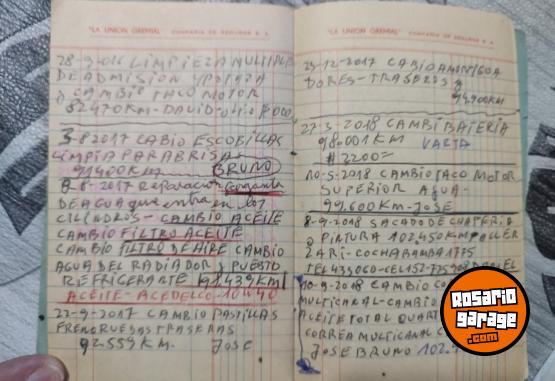 "LA UNION GREMIAL" COMPAÑIA DE SEGUROS S. A.
28-9-2016 LIMPIEZA MULTIPLE
DE ADMISION
CAMBIO TACO MOTOR
82470KM-DAVID
3-8-2017 CABIO ESCOBILLAS
LIMPIA PARABRISA-
91400KM BRUNO
8-8-2017 Reparacion Garganta
DE AGUA que entra en los
CILINDROS-CAMBIO ACEITE
CAMBIO FILTRO ACEITE
CAMBIO FILTRO DE AIRE CAMBIO
AGUA DEL RADIADOR y PUESTO
REFRIGERANTE 91439KM
ACEITE-ACEDELCO 10W40
22-9-2017 CAMBIO PASTILLAS
FRENO RUEDAS TRASERAS
92.559KM. JOSE
"LA UNION GREMIAL" COMPAÑIA DE SEGUROS S. A.
23-12-2017 CABIO AMORTIGUA
DORES-TRASEROS
94.900KM
27-3-2018 CAMBI BATERIA
98.001KM VARTA
$2200=
10-5-2018 CAMBIO TACO MOTOR
SUPERIOR AGUA-
99.600KM-JOSE
8-9-2018 SACADO DE CHAPERIA
y PINTURA 102.450KM TALLER
ZARI-COCHABAMBA 1775
10-9-2018 CAMBIO
MULTICANAL-CAMBIO
ACEITE TOTAL QUART
CORREA MULTICANAL
JOSE BRUNO 102.
Rosario
garage
.com